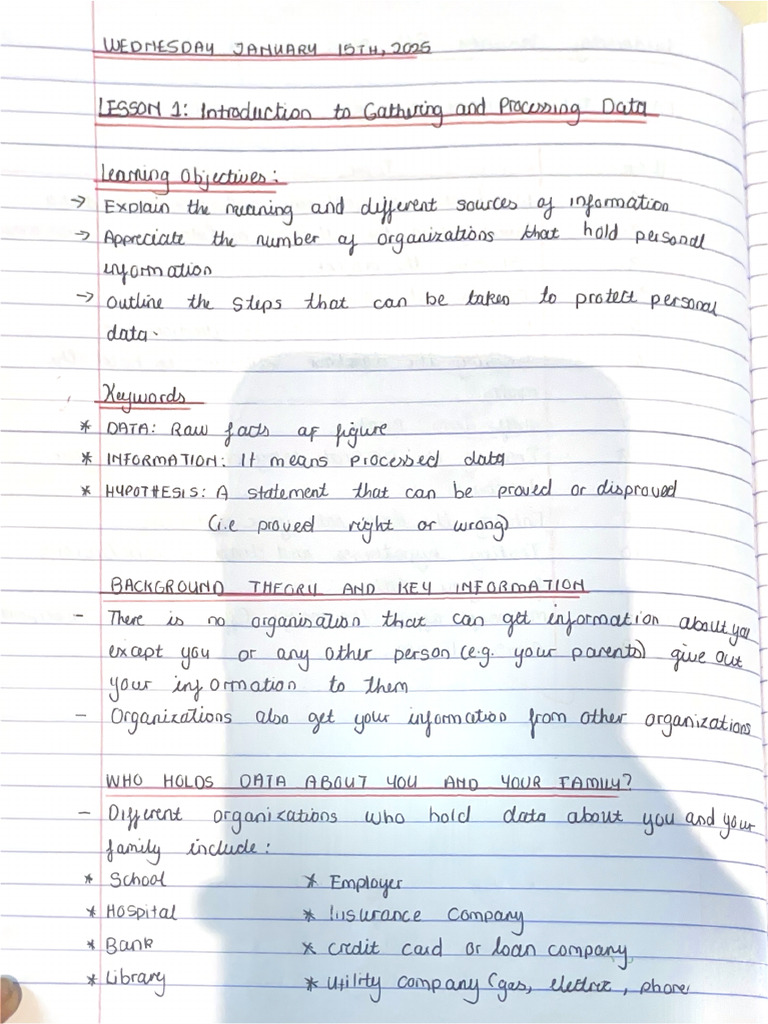 WEDNESDAY JANUARY 15TH, 2025
LESSON 1: Introduction to Gathering and Processing Data
Learning Objectives:
→ Explain the meaning and different sources of information
→ Appreciate the number of organizations that hold personal
information
→ Outline the steps that can be taken to protect personal
data.
Keywords
* DATA: Raw facts of figure
* INFORMATION: It means processed data
* HYPOTHESIS: A statement that can be proved or disproved
(i.e proved right or wrong)
BACKGROUND THEORY AND KEY INFORMATION
- There is no organisation that can get information about you
except you or any other person (e.g. your parents) give out
your information to them
- Organizations also get your information from other organizations
WHO HOLDS DATA ABOUT YOU AND YOUR FAMILY?
- Different organizations who hold data about you and your
family include:
* School * Employer
* Hospital * Insurance Company
* Bank * credit card or loan company
* Library * Utility company (gas, electric, phone